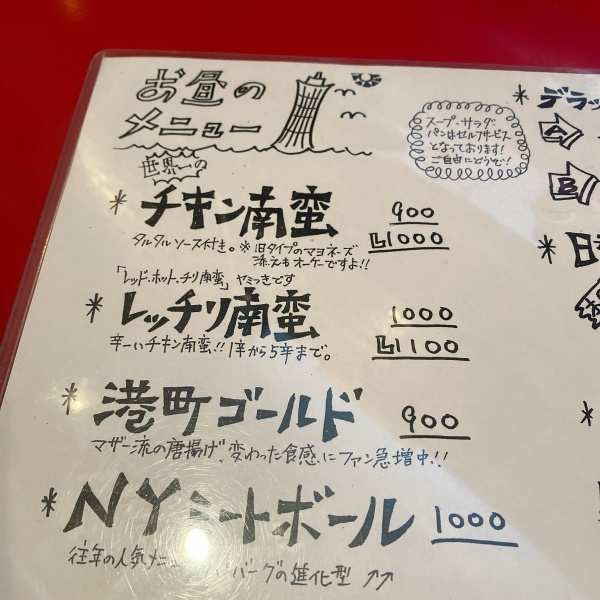 お昼の
メニュー
スープ・サラダ・
パンはセルフサービス
となっております!
ご自由にどうぞ!
世界一の
* チキン南蛮 900
L 1000
タルタルソース付き。※旧タイプのマヨネーズ
添えもオーケーですよ!!
「レッド・ホット・チリ南蛮」ヤミつきです
* レッチリ南蛮 1000
L 1100
辛ーいチキン南蛮!! 1辛から5辛まで。
* 港町ゴールド 900
マザー流の唐揚げ、変わった食感にファン急増中!!
* NYミートボール 1000
往年の人気メニュ バーグの進化型 ↗↗
* デラッ
A
B
*
*